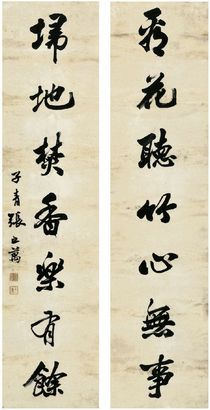 看花聽竹心無事
埽地焚香樂有餘
子青張之萬